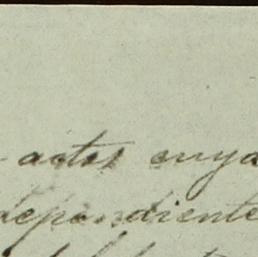 actos cuya
dependiente